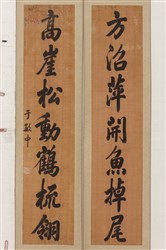 方沼萍開魚掉尾
高崖松動鶴梳翎
于敏中